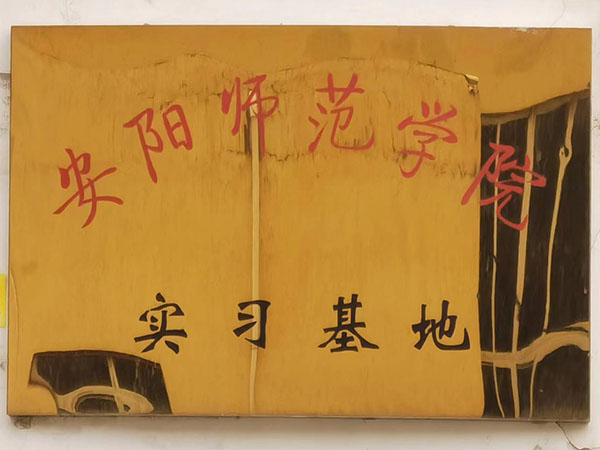 安阳师范学院
实习基地